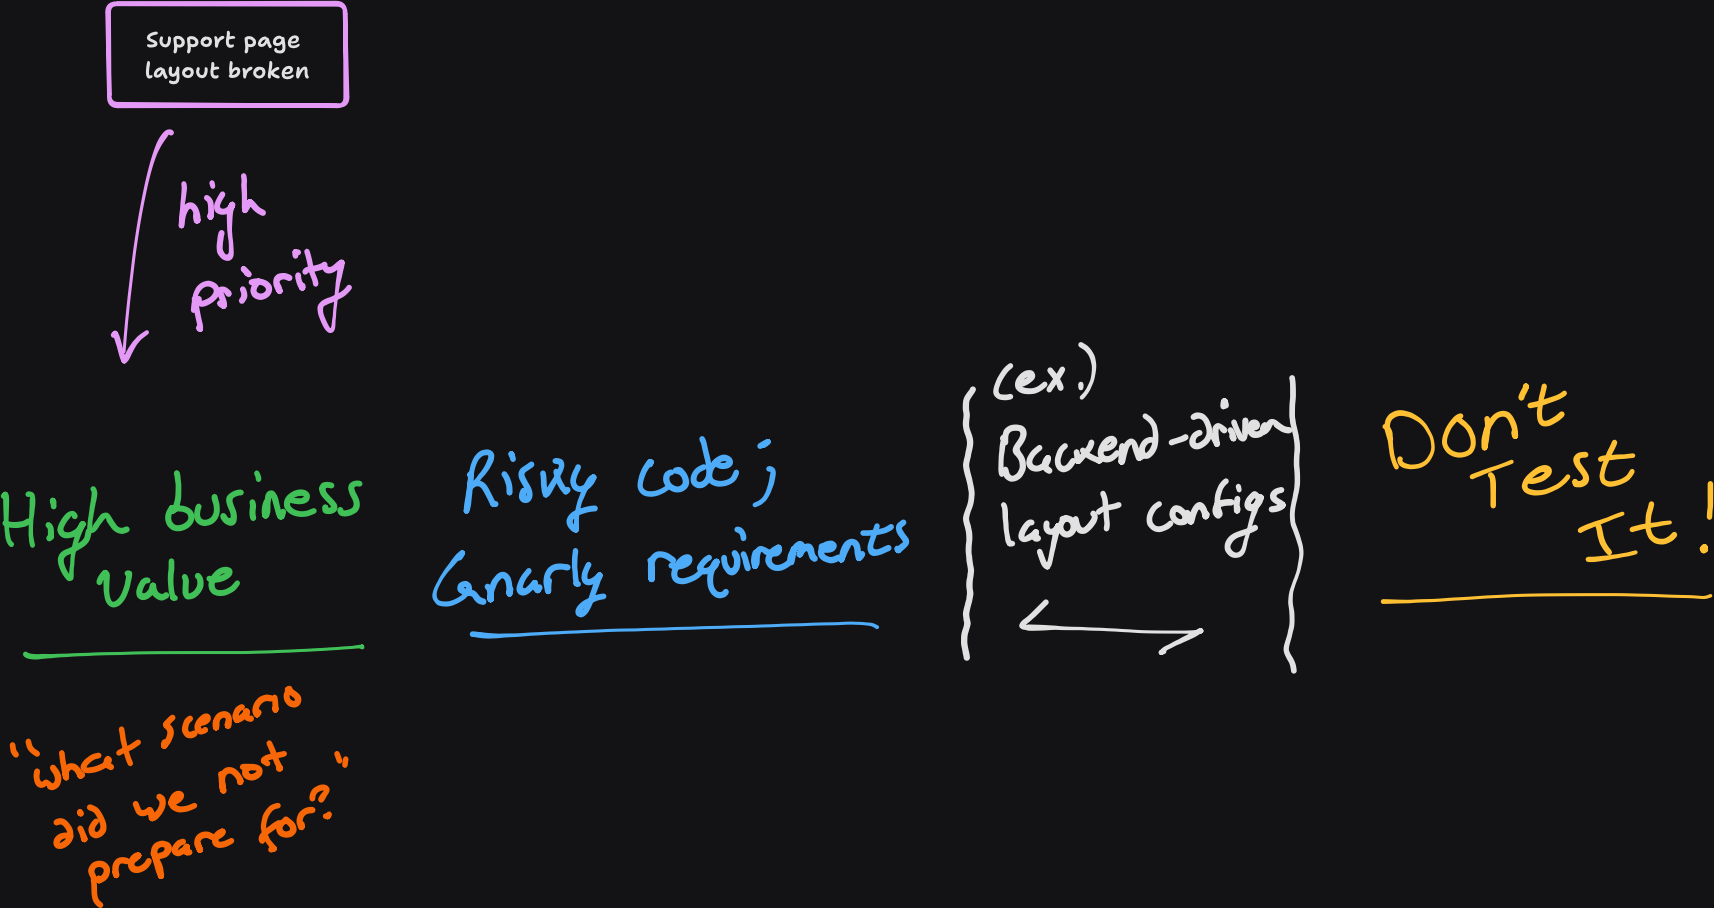 Support page
layout broken
high
priority
High business
value
"what scenario
did we not
prepare for?"
Risky code;
Gnarly requirements
(ex.)
Backend-driven
layout configs
Don't
Test
It!